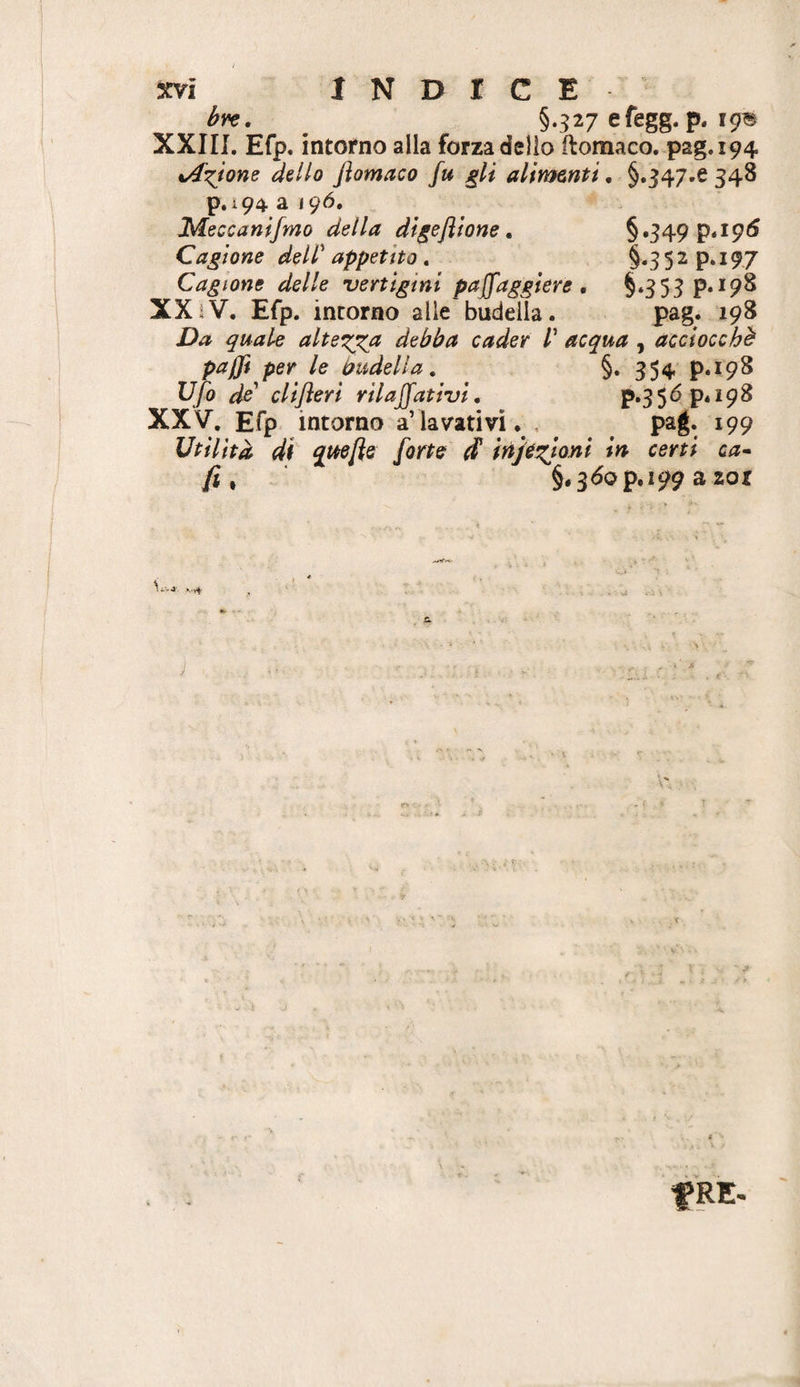 xvi INDICE
bre. §.327 e ſegg. p. 19
XXIII. Eſp. intorno alla forza dello ſtomaco. pag.194
Azione dello ſtomaco ſu gli alimenti. §.347.e 348
p.194 a 196.
Meccaniſmo della digeſtione. §.349 p.196
Cagione dell' appetito. §.352 p.197
Cagione delle vertigini paſſaggiere. §.353 p.198
XXIV. Eſp. intorno alle budella. pag. 198
Da quale altezza debba cader l' acqua, acciocchè
paſſi per le budella. §. 354 p.198
Uſo de' cliſteri rilaſſativi. p.356 p.198
XXV. Eſp intorno a' lavativi. pag. 199
Utilità di queſte ſorte d' injezioni in certi ca-
ſi, §.360 p.199 a 201
PRE-